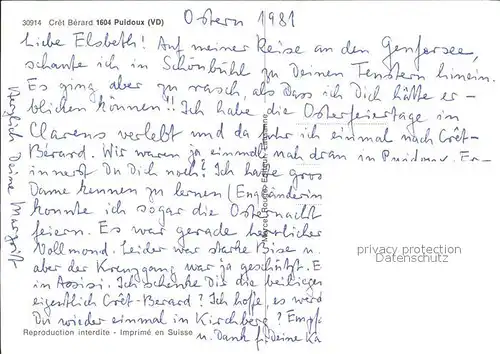 30914 Crêt Bérard 1604 Puidoux (VD)
Ostern 1981
Liebe Elsbeth! Auf meiner Reise an den Genfersee,
schaute ich in Schönbühl zu Deinen Fenstern hinein.
Es ging aber zu rasch, als dass ich Dich hätte er-
blicken können!! Ich habe die Osterfeiertage in
Clarens verlebt und da fuhr ich einmal nach Crêt-
Bérard. Wir waren ja einmal nah dran in Puidoux. Er-
innerst Du Dich noch? Ich hatte gros
Dame kennen zu lernen (Engländerin
konnte ich sogar die Osternacht
feiern. Es war gerade herrlicher
Vollmond. Leider war starke Bise u.
aber der Kreuzgang war ja geschützt. E
in Assisi. Ich schenke Dir die heiligen
eigentlich Crêt-Berard? Ich hoffe, es werd
Du wieder einmal in Kirchberg? Empf
u. Dank f. Deine Ka
Herzlich Deine Margrit
privacy protection
Datenschutz
Reproduction interdite - Imprimé en Suisse